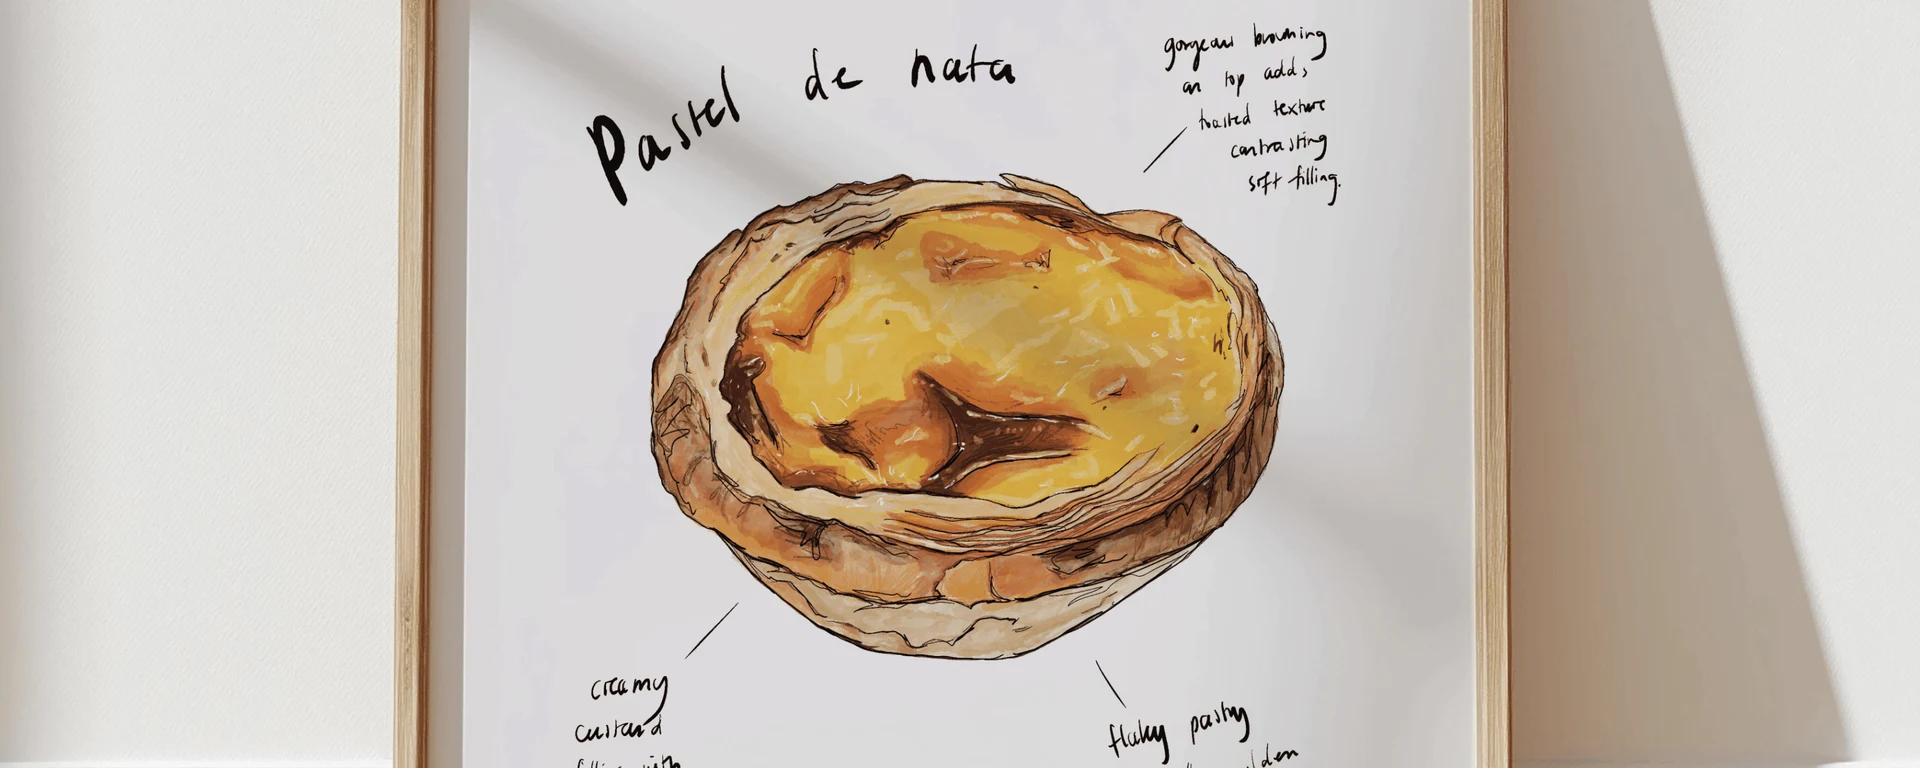 Pastel de nata
gorgeous browning
on top adds
toasted texture
contrasting
soft filling.
creamy
custard
filling with
flaky pastry